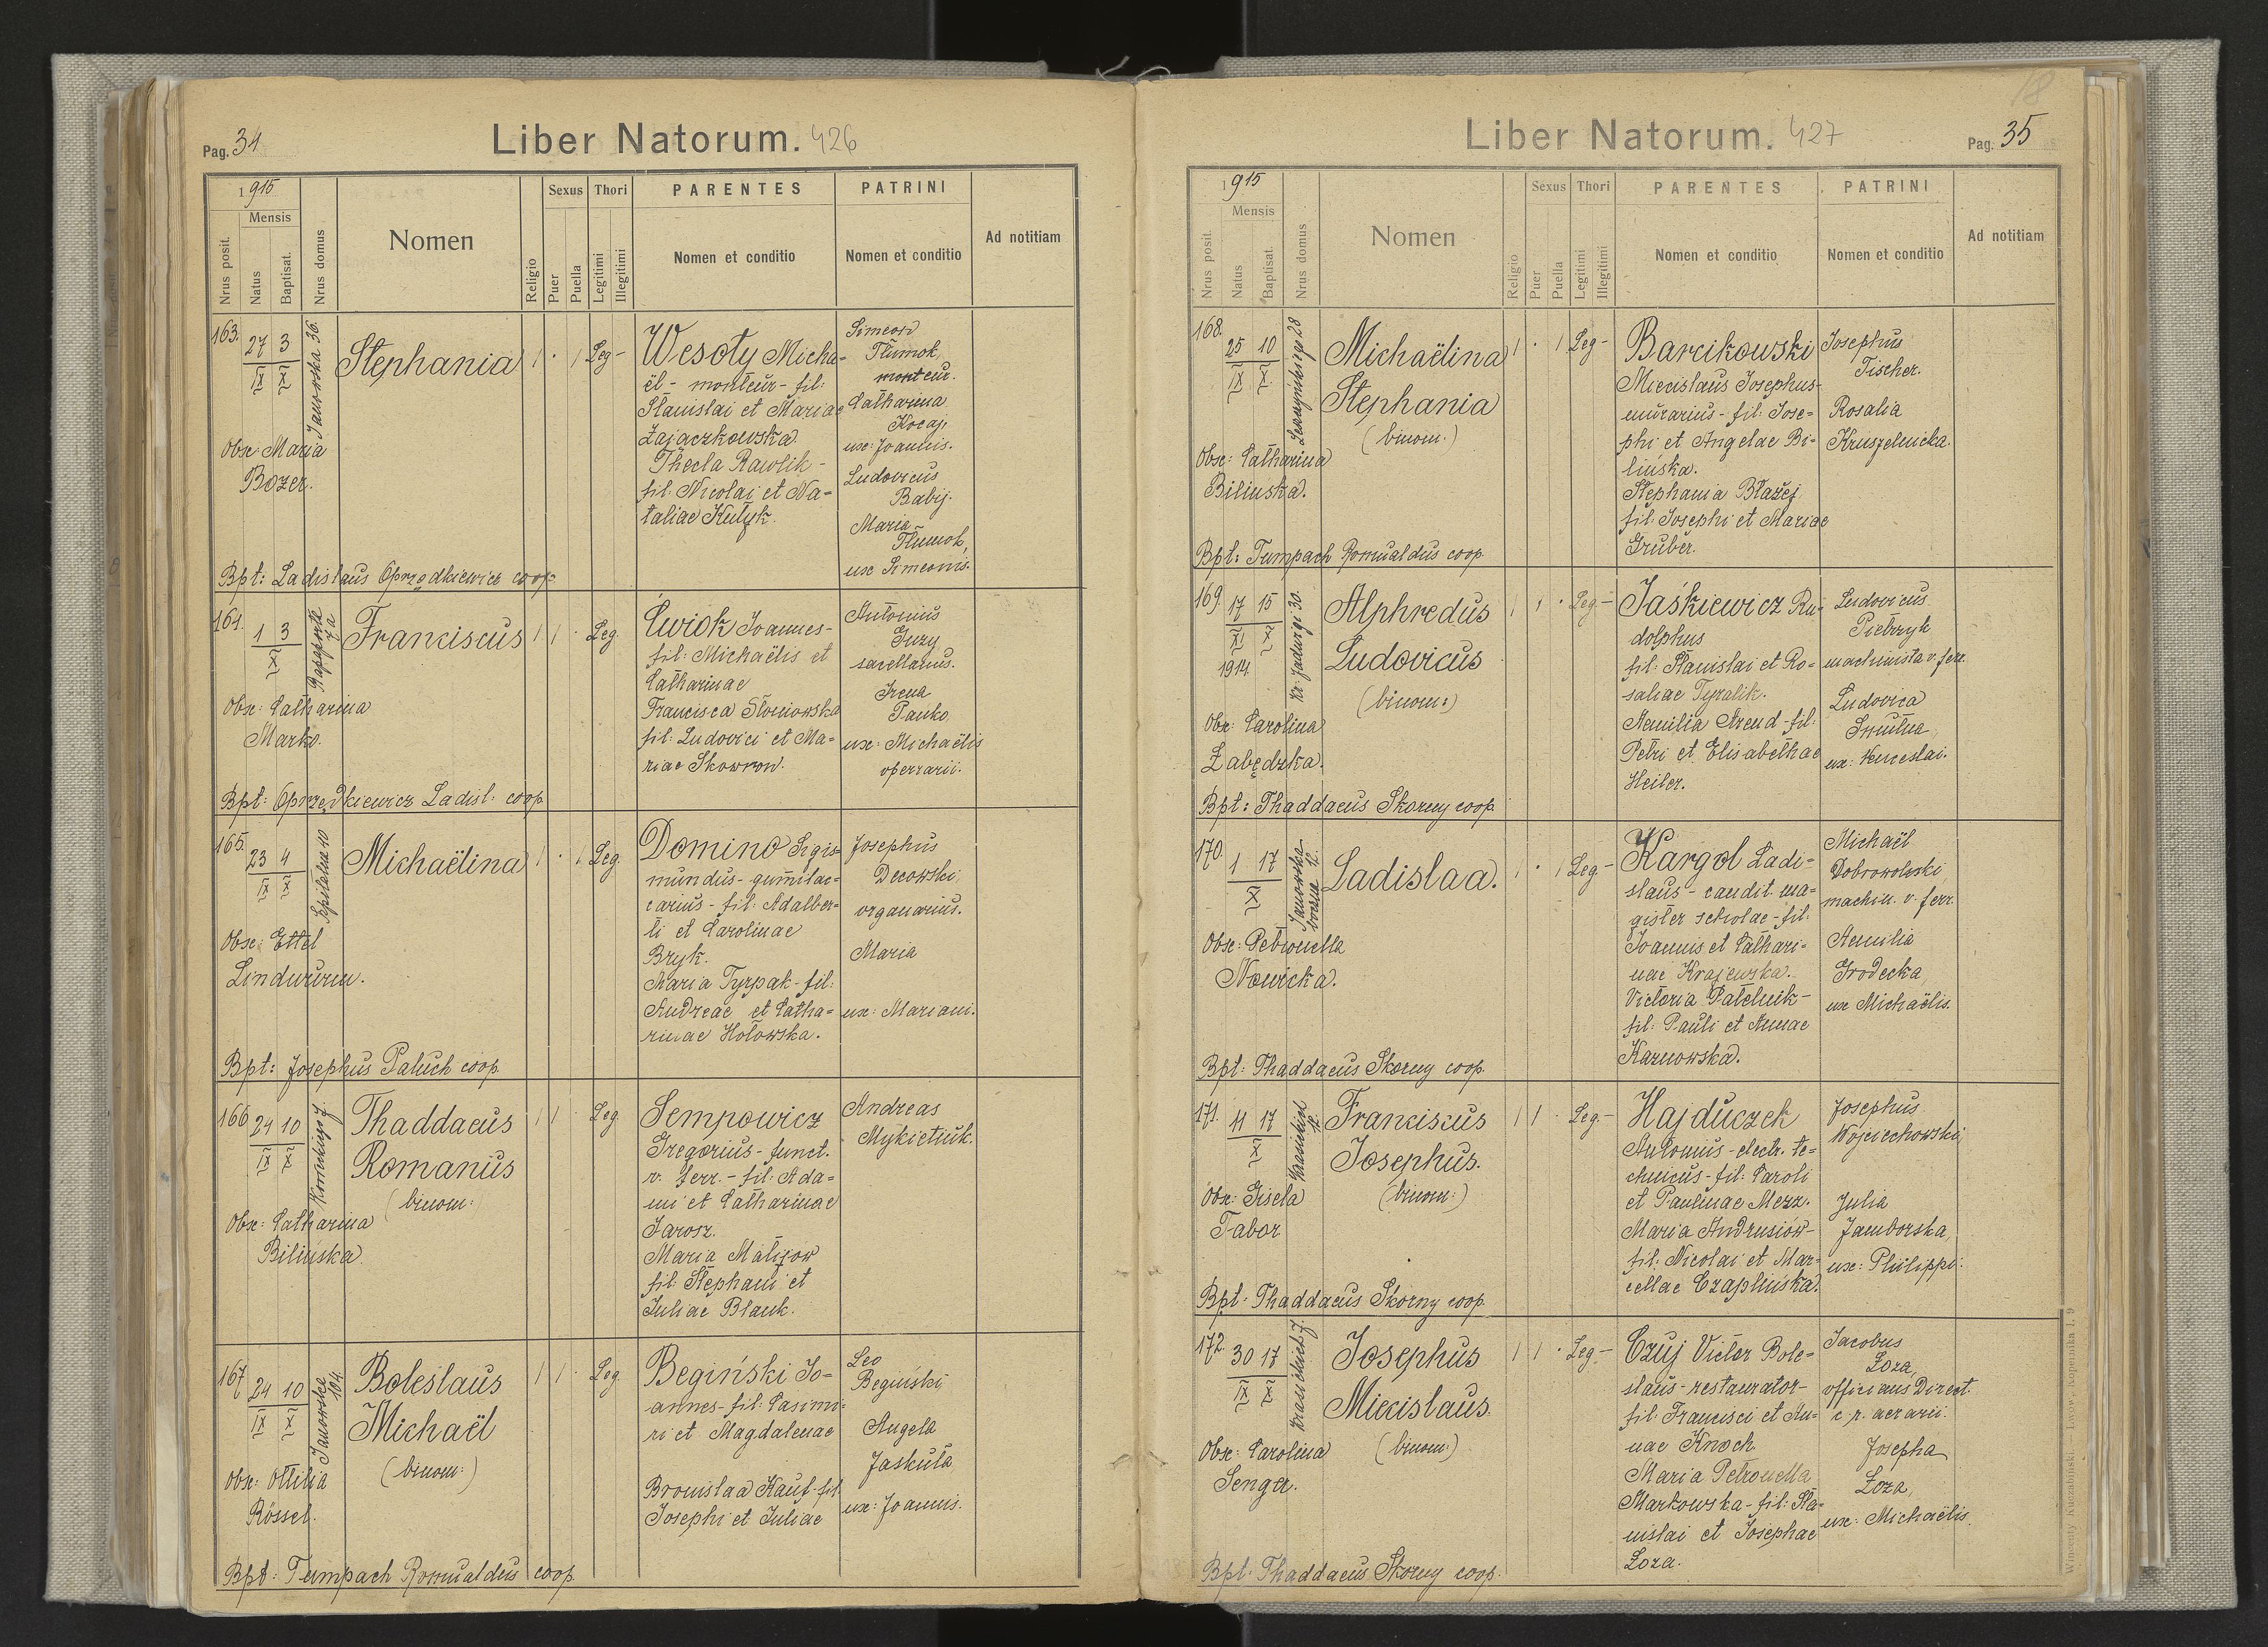 Pag. 34
Liber Natorum. 426
1915
Mensis
Nrus posit.
Natus
Baptisat.
Nrus domus
Nomen
Religio
Sexus
Puer
Puella
Thori
Legitimi
Illegitimi
PARENTES
Nomen et conditio
PATRINI
Nomen et conditio
Ad notitiam
163.
27 3
IX X
Janowska 36.
Stephania
1 · 1 Leg-
Wesoły Micha-
ël - monteur - fil:
Stanislai et Mariae
Zajączkowska.
Thecla Rawlik -
fil. Nicolai et Na-
taliae Kulyk.
Simeon
Tłumok,
monteur.
Catharina
Kocaj,
ux: Joannis.
Ludovicus
Babij.
Maria
Tłumok,
ux Simeonis.
Obx: Maria
Bozer.
Bpt: Ladislaus Oprzędkiewicz coop.
164.
1 3
X
Rappaporta 7a
Franciscus
1 1 · Leg.
Ćwiok Joannes -
fil: Michaëlis et
Catharinae
Francisca Słoniowska
fil: Ludovici et Ma-
riae Skowron.
Antonius
Guzy
sacellanus.
Irena
Panko,
ux: Michaëlis
operarii.
Obx: Catharina
Marko.
Bpt: Oprzędkiewicz Ladisl: coop
165.
23 4
IX X
10
Michaëlina
1 · 1 Leg.
Domino Sigis-
mundus - gumilac-
carius - fil: Adalber-
ti et Carolinae
Bryk.
Maria Tyrpak - fil:
Andreae et Catha-
rinae Hołowska.
Josephus
Decowski,
organarius.
Maria
ux: Mariani.
Obx: Ettel
Lindwurm.
Bpt: Josephus Paluch coop
166
24 10
IX X
Thaddaeus
Romanus
(binom:)
1 1 · Leg.
Sempowicz
Gregorius - funct.
v. ferr. - fil: Ada-
mi et Catharinae
Jarosz.
Maria Malizow
fil: Stephani et
Juliae Blauk.
Andreas
Mykietiuk.
Obx: Catharina
Bilińska
167
24 10
IX X
Janowska 104.
Boleslaus
Michaël
(binom:)
1 1 · Leg.
Begiński Jo-
annes - fil: Casimi-
ri et Magdalenae
Bronislaa Kauf - fil
Josephi et Juliae
Leo
Begiński,
Angela
Jaskuła
ux: Joannis.
Obx: Ottilia
Rössel.
Bpt: Tumpach Romualdus coop
18
Liber Natorum. 427
Pag. 35
1915
Mensis
Nrus posit.
Natus
Baptisat.
Nrus domus
Nomen
Religio
Sexus
Puer
Puella
Thori
Legitimi
Illegitimi
PARENTES
Nomen et conditio
PATRINI
Nomen et conditio
Ad notitiam
168.
25 10
IX X
28
Michaëlina
Stephania
(binom:)
1 · 1 Leg-
Barcikowski
Miecislaus Josephus-
murarius - fil: Jose-
phi et Angelae Bi-
lińska.
Stephania Błażej
fil: Josephi et Mariae
Gruber.
Josephus
Fischer.
Rosalia
Kruszelnicka.
Obx: Catharina
Bilinska.
Bpt: Tumpach Romualdus coop.
169.
17 15
XI X
1914
Kr. Jadwigi 30.
Alphredus
Ludovicus
(binom:)
1 1 · Leg-
Jaśkiewicz Ru-
dolphus
fil: Stanislai et Ro-
saliae Tyralik.
Aemilia Arend - fil:
Petri et Elisabethae
Heiler.
Ludovicus
Pietrzyk
machinista v. ferr.
Ludovica
Smutna,
ux: Venceslai.
Obx: Carolina
Zabędzka.
Bpt: Thaddaeus Skorny coop
170.
1 17
X
Janowska boczna 12.
Ladislaa.
1 · 1 Leg-
Kargol Ladi-
slaus - candit. ma-
gister scholae - fil:
Joannis et Cathari-
nae Krajewska.
Victoria Patelnik -
fil: Pauli et Annae
Karnowska.
Michaël
Dobrowolski,
machin. v. ferr.
Aemilia
Grodecka
ux Michaëlis.
Obx: Petronella
Nowicka.
Bpt: Thaddaeus Skorny coop.
171.
11 17
X
12.
Franciscus
Josephus.
(binom:)
1 1 · Leg-
Hajduczek
Antonius - electr. te-
chnicus - fil: Caroli
et Paulinae Merz.
Maria Andrusiów -
fil: Nicolai et Mar-
cellae Czaplińska.
Josephus
Wojciechowski,
Julia
Jamborska,
ux: Philippi.
Obx: Gisela
Tabor
Bpt: Thaddaeus Skorny coop.
172.
30 17
IX X
Krasickich 7.
Josephus
Miecislaus.
(binom:)
1 1 · Leg-
Czuj Victor Bole-
slaus - restaurator -
fil: Francisci et An-
nae Knoch.
Maria Petronella
Markowska - fil: Sta-
nislai et Josephae
Łoza.
Jacobus
Łoza,
officians Direct.
c. r. aerarii.
Josepha
Łoza,
ux: Michaëlis.
Obx: Carolina
Senger.
Bpt: Thaddaeus Skorny coop.
Wincenty Kurzabiński. — Lwów, Kopernika l. 9